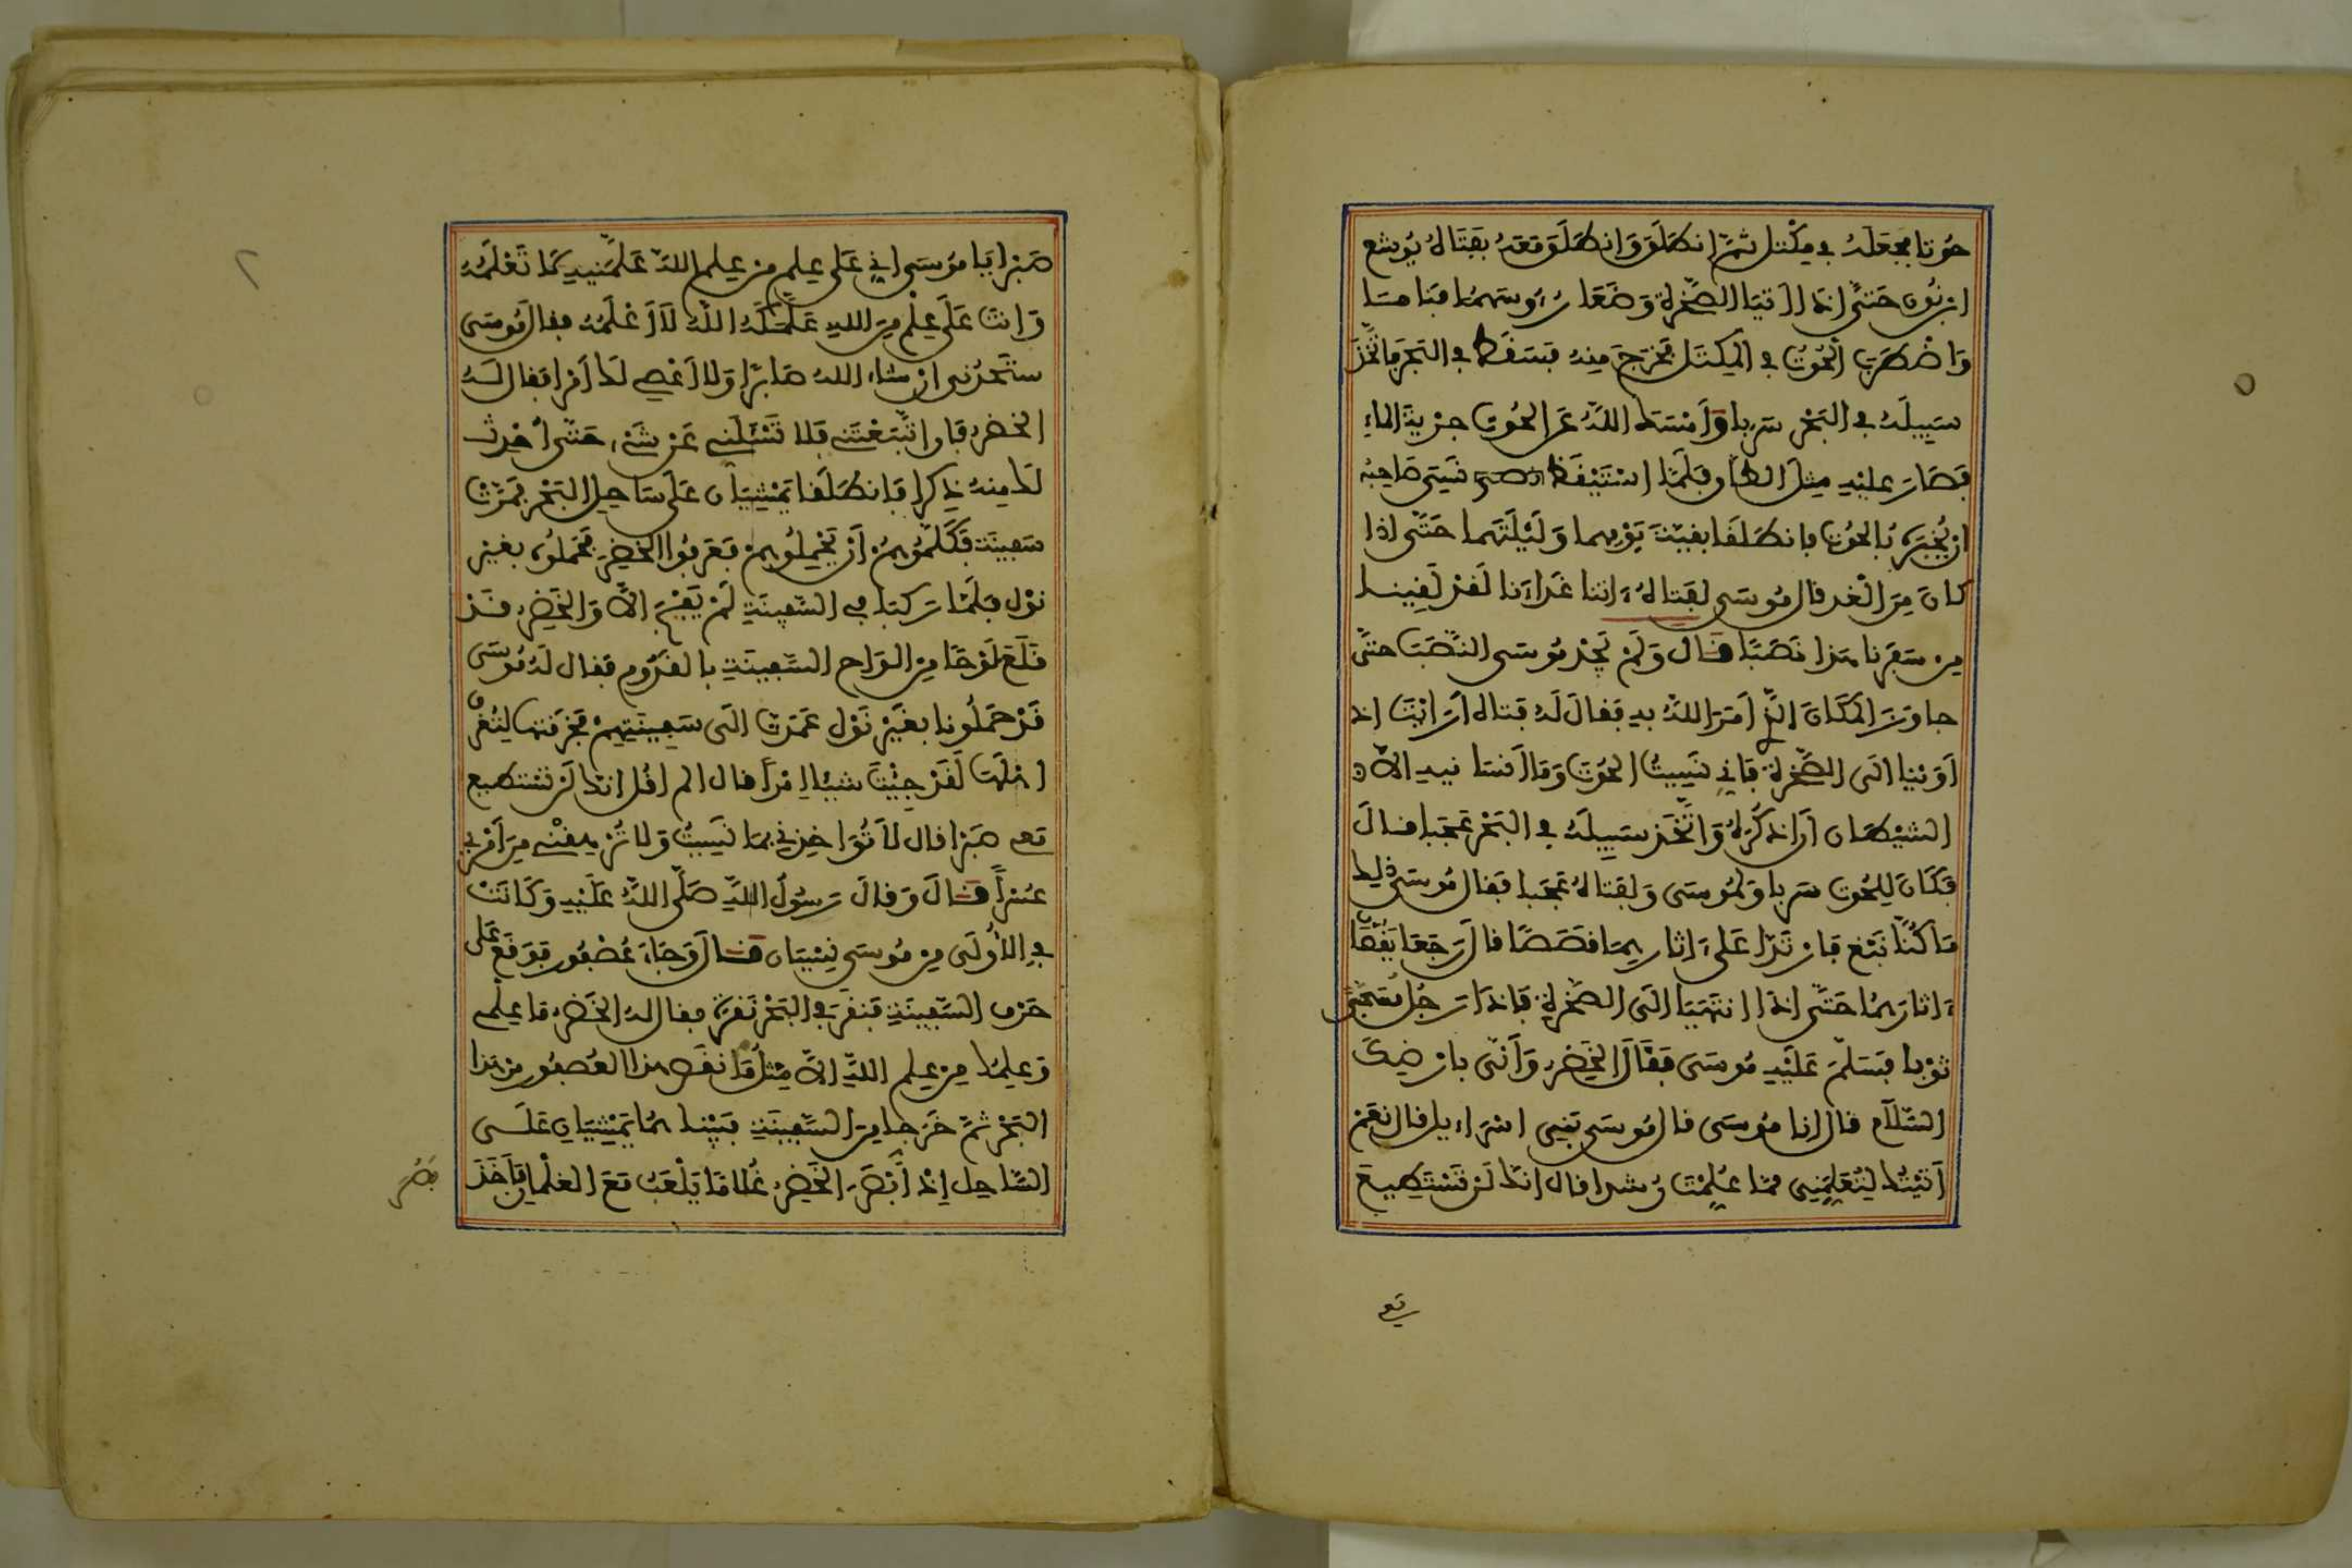 حوتا فجعله في مكتل ثم انطلق وانطلق معه بفتاه يوشع
ابن نون حتى اذا اتيا الصخرة وضعا رءوسهما فناما
واضطرب الحوت في المكتل فخرج منه فسقط في البحر فاتخذ
سبيله في البحر سربا وامسك الله عن الحوت جرية الماء
فصار عليه مثل الطاق فلما استيقظ نسي صاحبه
ان يخبره بالحوت فانطلقا بقية يومهما وليلتهما حتى اذا
كان من الغد قال موسى لفتاه ءاتنا غداءنا لقد لقينا
من سفرنا هذا نصبا قال ولم يجد موسى النصب حتى
جاوز المكان الذي امر الله به فقال له فتاه أرايت اذ
اوينا الى الصخرة فاني نسيت الحوت وما انسانيه الا
الشيطان ان اذكره واتخذ سبيله في البحر عجبا قال
فكان للحوت سربا ولموسى ولفتاه عجبا فقال موسى ذلك
ما كنا نبغ فارتدا على ءاثارهما قصصا قال رجعا يقصا
ءاثارهما حتى اذا انتهيا الى الصخرة فاذا رجل مسجى
ثوبا فسلم عليه موسى فقال الخضر وأنى بارضك
السلام قال انا موسى قال موسى بني اسراءيل قال نعم
أتيتك لتعلمني مما علمت رشدا قال انك لن تستطيع
مع
صبرا يا موسى اني على علم من علم الله علمنيه كما تعلمه
وانت على علم من الله علمكه الله لا اعلمه فقال موسى
ستجدني ان شاء الله صابرا ولا اعصي لك أمرا فقال له
الخضر فان اتبعتني فلا تسئلني عن شيء حتى أحدث
لك منه ذكرا فانطلقا يمشيان على ساحل البحر فمرت
سفينة فكلموهم أن يحملوهم فعرفوا الخضر فحملوه بغير
نول فلما ركبا في السفينة لم يفجأ الا والخضر قد
قلع لوحا من الواح السفينة بالقدوم فقال له موسى
قد حملونا بغير نول عمدت الى سفينتهم فخرقتها لتغرق
اهلها لقد جئت شيئا امرا قال الم اقل انك لن تستطيع
معي صبرا قال لا تؤاخذني بما نسيت ولا ترهقني من أمري
عسرا قال وقال رسول الله صلى الله عليه وكانت
في الأولى من موسى نسيان قال وجاء عصفور فوقع على
حرف السفينة فنقر في البحر نقرة فقال له الخضر ما علمي
وعلمك من علم الله الا مثل ما نقص هذا العصفور من هذا
البحر ثم خرجا من السفينة فبينا هما يمشيان على
الساحل إذ أبصر الخضر غلاما يلعب مع الغلمان فأخذ